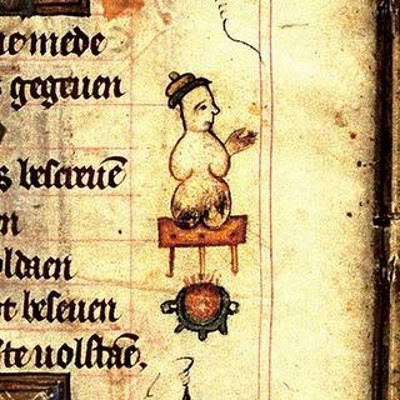 mede
gegeuen
s bescreuē
en
ldaen
t beseuen
te uolstaē.